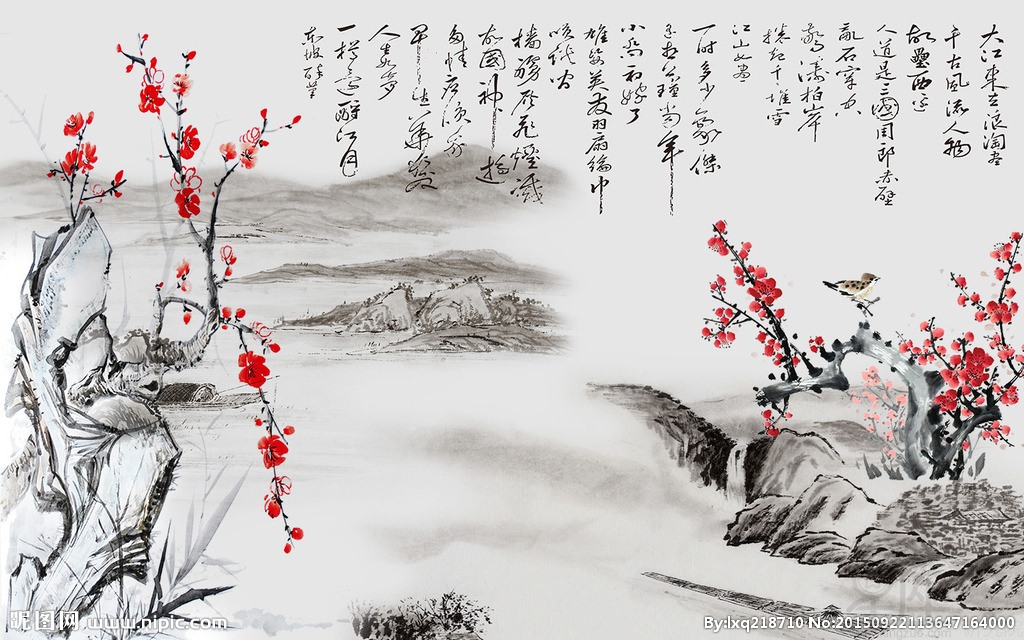 大江東去浪淘盡
千古風流人物
故壘西邊
人道是三國周郎赤壁
亂石穿空
驚濤拍岸
捲起千堆雪
江山如畫
一時多少豪傑
遙想公瑾當年
小喬初嫁了
雄姿英發羽扇綸巾
談笑間
檣櫓灰飛煙滅
故國神遊
多情應笑我
早生華髮
人生如夢
一樽還酹江月
東坡醉筆
昵图网 www.nipic.com
By:lxq218710 No:20150922113647164000